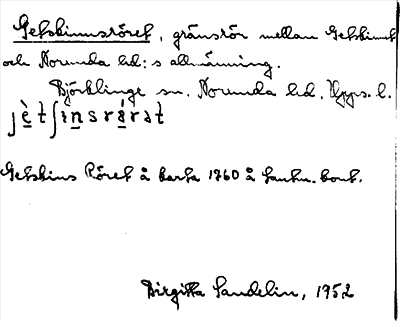 Getskinnsröret, gränsrör mellan Getskinnet
och Norunda hd:s allmänning.
Björklinge sn. Norunda hd. Upps. l.
jè̱tʃi̱nsrá̱rət
Getskins Röret å karta 1760 å Lantm. kont.
Birgitta Sandelin, 1952